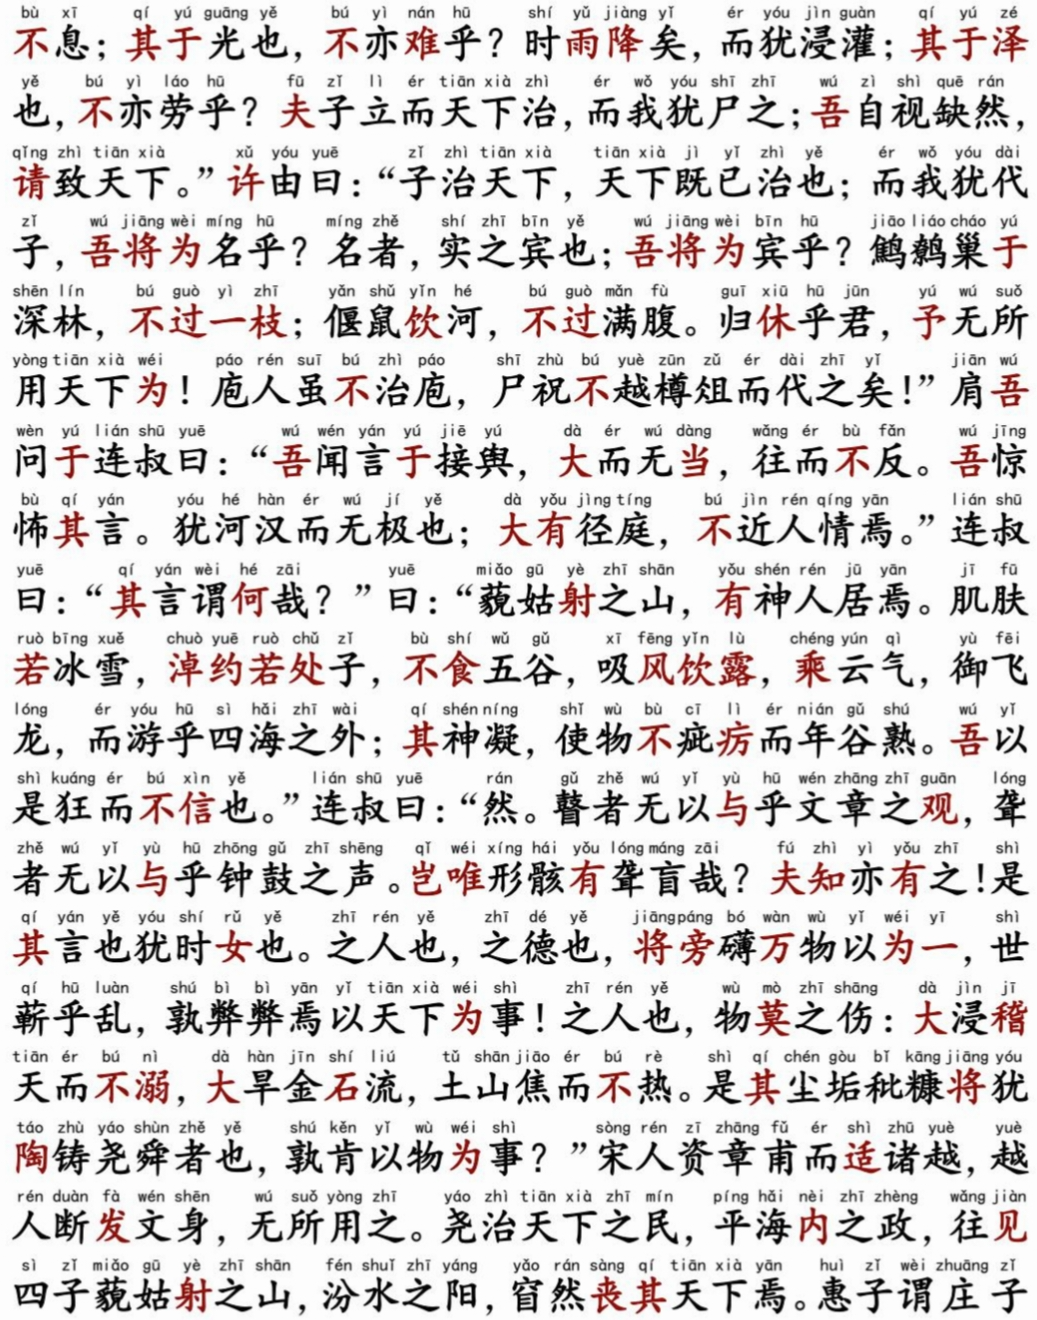 bù xī qí yú guāng yě bú yì nán hū shí yǔ jiàng yǐ ér yóu jìn guàn qí yú zé
不息；其于光也，不亦难乎？时雨降矣，而犹浸灌；其于泽
yě bú yì láo hū fū zǐ lì ér tiān xià zhì ér wǒ yóu shī zhī wú zì shì quē rán
也，不亦劳乎？夫子立而天下治，而我犹尸之；吾自视缺然，
qǐng zhì tiān xià xǔ yóu yuē zǐ zhì tiān xià tiān xià jì yǐ zhì yě ér wǒ yóu dài
请致天下。”许由曰：“子治天下，天下既已治也；而我犹代
zǐ wú jiāng wèi míng hū míng zhě shí zhī bīn yě wú jiāng wèi bīn hū jiāo liáo cháo yú
子，吾将为名乎？名者，实之宾也；吾将为宾乎？鹪鹩巢于
shēn lín bú guò yì zhī yǎn shǔ yǐn hé bú guò mǎn fù guī xiū hū jūn yú wú suǒ
深林，不过一枝；偃鼠饮河，不过满腹。归休乎君，予无所
yòng tiān xià wéi páo rén suī bú zhì páo shī zhù bú yuè zūn zǔ ér dài zhī yǐ jiān wú
用天下为！庖人虽不治庖，尸祝不越樽俎而代之矣！”肩吾
wèn yú lián shū yuē wú wén yán yú jiē yú dà ér wú dàng wǎng ér bù fǎn wú jīng
问于连叔曰：“吾闻言于接舆，大而无当，往而不反。吾惊
bù qí yán yóu hé hàn ér wú jí yě dà yǒu jìng tíng bú jìn rén qíng yān lián shū
怖其言。犹河汉而无极也；大有径庭，不近人情焉。”连叔
yuē qí yán wèi hé zāi yuē miǎo gū yè zhī shān yǒu shén rén jū yān jī fū
曰：“其言谓何哉？”曰：“藐姑射之山，有神人居焉。肌肤
ruò bīng xuě chuò yuē ruò chǔ zǐ bù shí wǔ gǔ xī fēng yǐn lù chéng yún qì yù fēi
若冰雪，淖约若处子，不食五谷，吸风饮露，乘云气，御飞
lóng ér yóu hū sì hǎi zhī wài qí shén níng shǐ wù bù cī lì ér nián gǔ shú wú yǐ
龙，而游乎四海之外；其神凝，使物不疵疠而年谷熟。吾以
shì kuáng ér bú xìn yě lián shū yuē rán gǔ zhě wú yǐ yù hū wén zhāng zhī guān lóng
是狂而不信也。”连叔曰：“然。瞽者无以与乎文章之观，聋
zhě wú yǐ yù hū zhōng gǔ zhī shēng qǐ wéi xíng hái yǒu lóng máng zāi fú zhì yì yǒu zhī shì
者无以与乎钟鼓之声。岂唯形骸有聋盲哉？夫知亦有之！是
qí yán yě yóu shí rǔ yě zhī rén yě zhī dé yě jiāng páng bó wàn wù yǐ wéi yī shì
其言也犹时女也。之人也，之德也，将旁礴万物以为一，世
qí hū luàn shú bì bì yān yǐ tiān xià wéi shì zhī rén yě wù mò zhī shāng dà jìn jī
蕲乎乱，孰弊弊焉以天下为事！之人也，物莫之伤：大浸稽
tiān ér bú nì dà hàn jīn shí liú tǔ shān jiāo ér bú rè shì qí chén gòu bǐ kāng jiāng yóu
天而不溺，大旱金石流，土山焦而不热。是其尘垢秕糠将犹
táo zhù yáo shùn zhě yě shú kěn yǐ wù wéi shì sòng rén zī zhāng fǔ ér shì zhū yuè yuè
陶铸尧舜者也，孰肯以物为事？”宋人资章甫而适诸越，越
rén duàn fà wén shēn wú suǒ yòng zhī yáo zhì tiān xià zhī mín píng hǎi nèi zhī zhèng wǎng jiàn
人断发文身，无所用之。尧治天下之民，平海内之政，往见
sì zǐ miǎo gū yè zhī shān fén shuǐ zhī yáng yǎo rán sàng qí tiān xià yān huì zǐ wèi zhuāng zǐ
四子藐姑射之山，汾水之阳，窅然丧其天下焉。惠子谓庄子